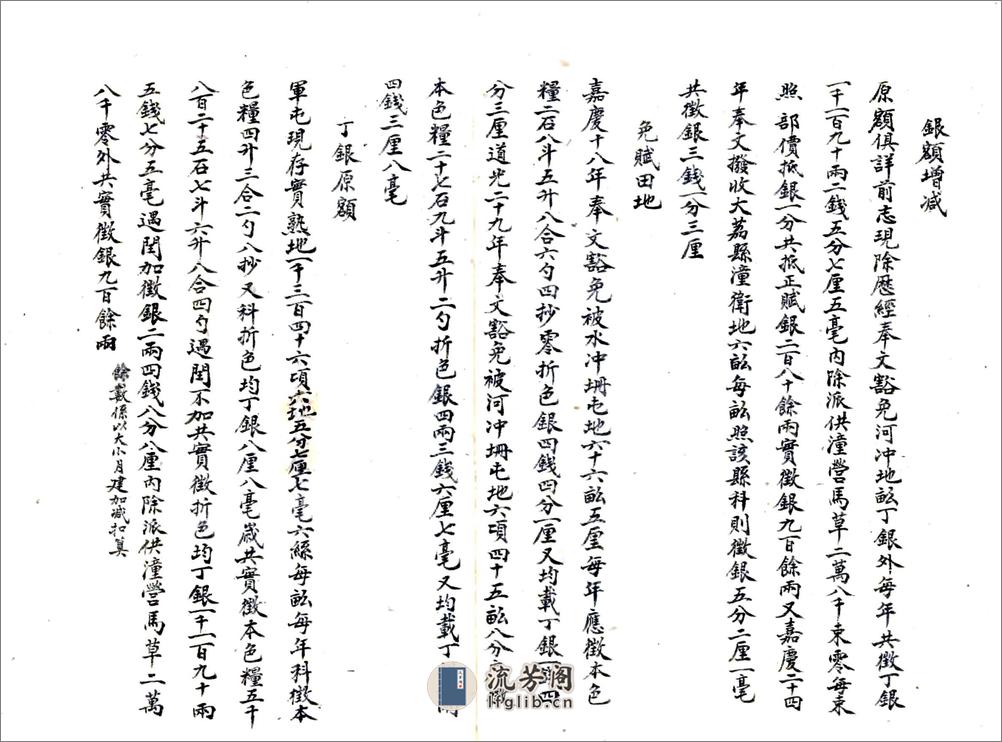 銀額增减
原額俱詳前志現除歷經奉文豁免河冲地畝丁銀外每年共徵丁銀
一千一百九十兩二錢五分七厘五毫內除派供潼營馬草二萬八千束零每束
照部價抵銀一分共抵正賦銀二百八十餘兩實徵銀九百餘兩又嘉慶二十四
年奉文撥收大荔縣潼衛地六畝每畝照該縣科則徵銀五分二厘一毫
共徵銀三錢一分三厘
免賦田地
嘉慶十八年奉文豁免被水冲坍屯地六十六畝五厘每年應徵本色
糧二石八斗五升八合六勺四抄零折色銀四錢四分一厘又均載丁銀一錢四
分三厘道光二十九年奉文豁免被河冲坍屯地六項四十五畝八分
本色糧二十七石九斗五升二勺折色銀四兩三錢六厘七毫又均載丁兩
四錢三厘八毫
丁銀原額
軍屯現存實熟地一千三百四十六項六地五分七厘七毫六絲每畝每年科徵本
色糧四升三合二勺八抄又科折色均丁銀八厘八毫歲共實徵本色糧五千
八百二十五石七斗六升八合四勺遇閏不加共實徵折色均丁銀一千一百九十兩
五錢七分五毫遇閏加徵銀二兩四錢八分八厘內除派供潼營馬草二萬
八千零外共實徵銀九百餘兩
餘數係以大小月建加减扣算
流芳阁
lfglib.cn